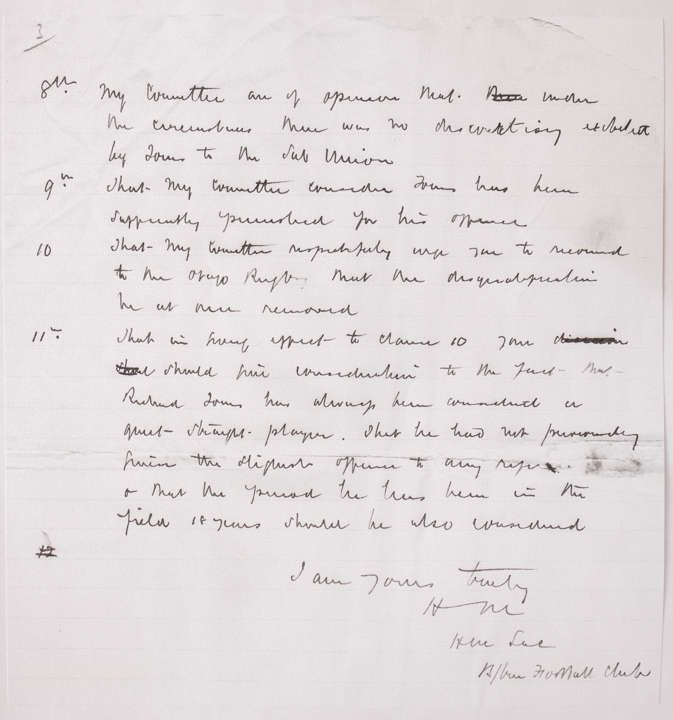 3
8th. My Committee are of opinion that under
the circumstances there was no discourtesy exhibited
by Jones to the Sub Union
9th That My Committee consider Jones has been
sufficiently punished for his offence
10 That My Committee respectfully urge you to recommend
to the Otago Rugby that the disqualification
be at once removed
11th. That in giving effect to clause 10 your
should give consideration to the fact that
Richard Jones has always been considered a
quiet straight player. That he had not previously
given the slightest offence to any
& that the period he has been in the
field 18 years should be also considered
12
I am yours truly
H
Hon Sec
Football Club